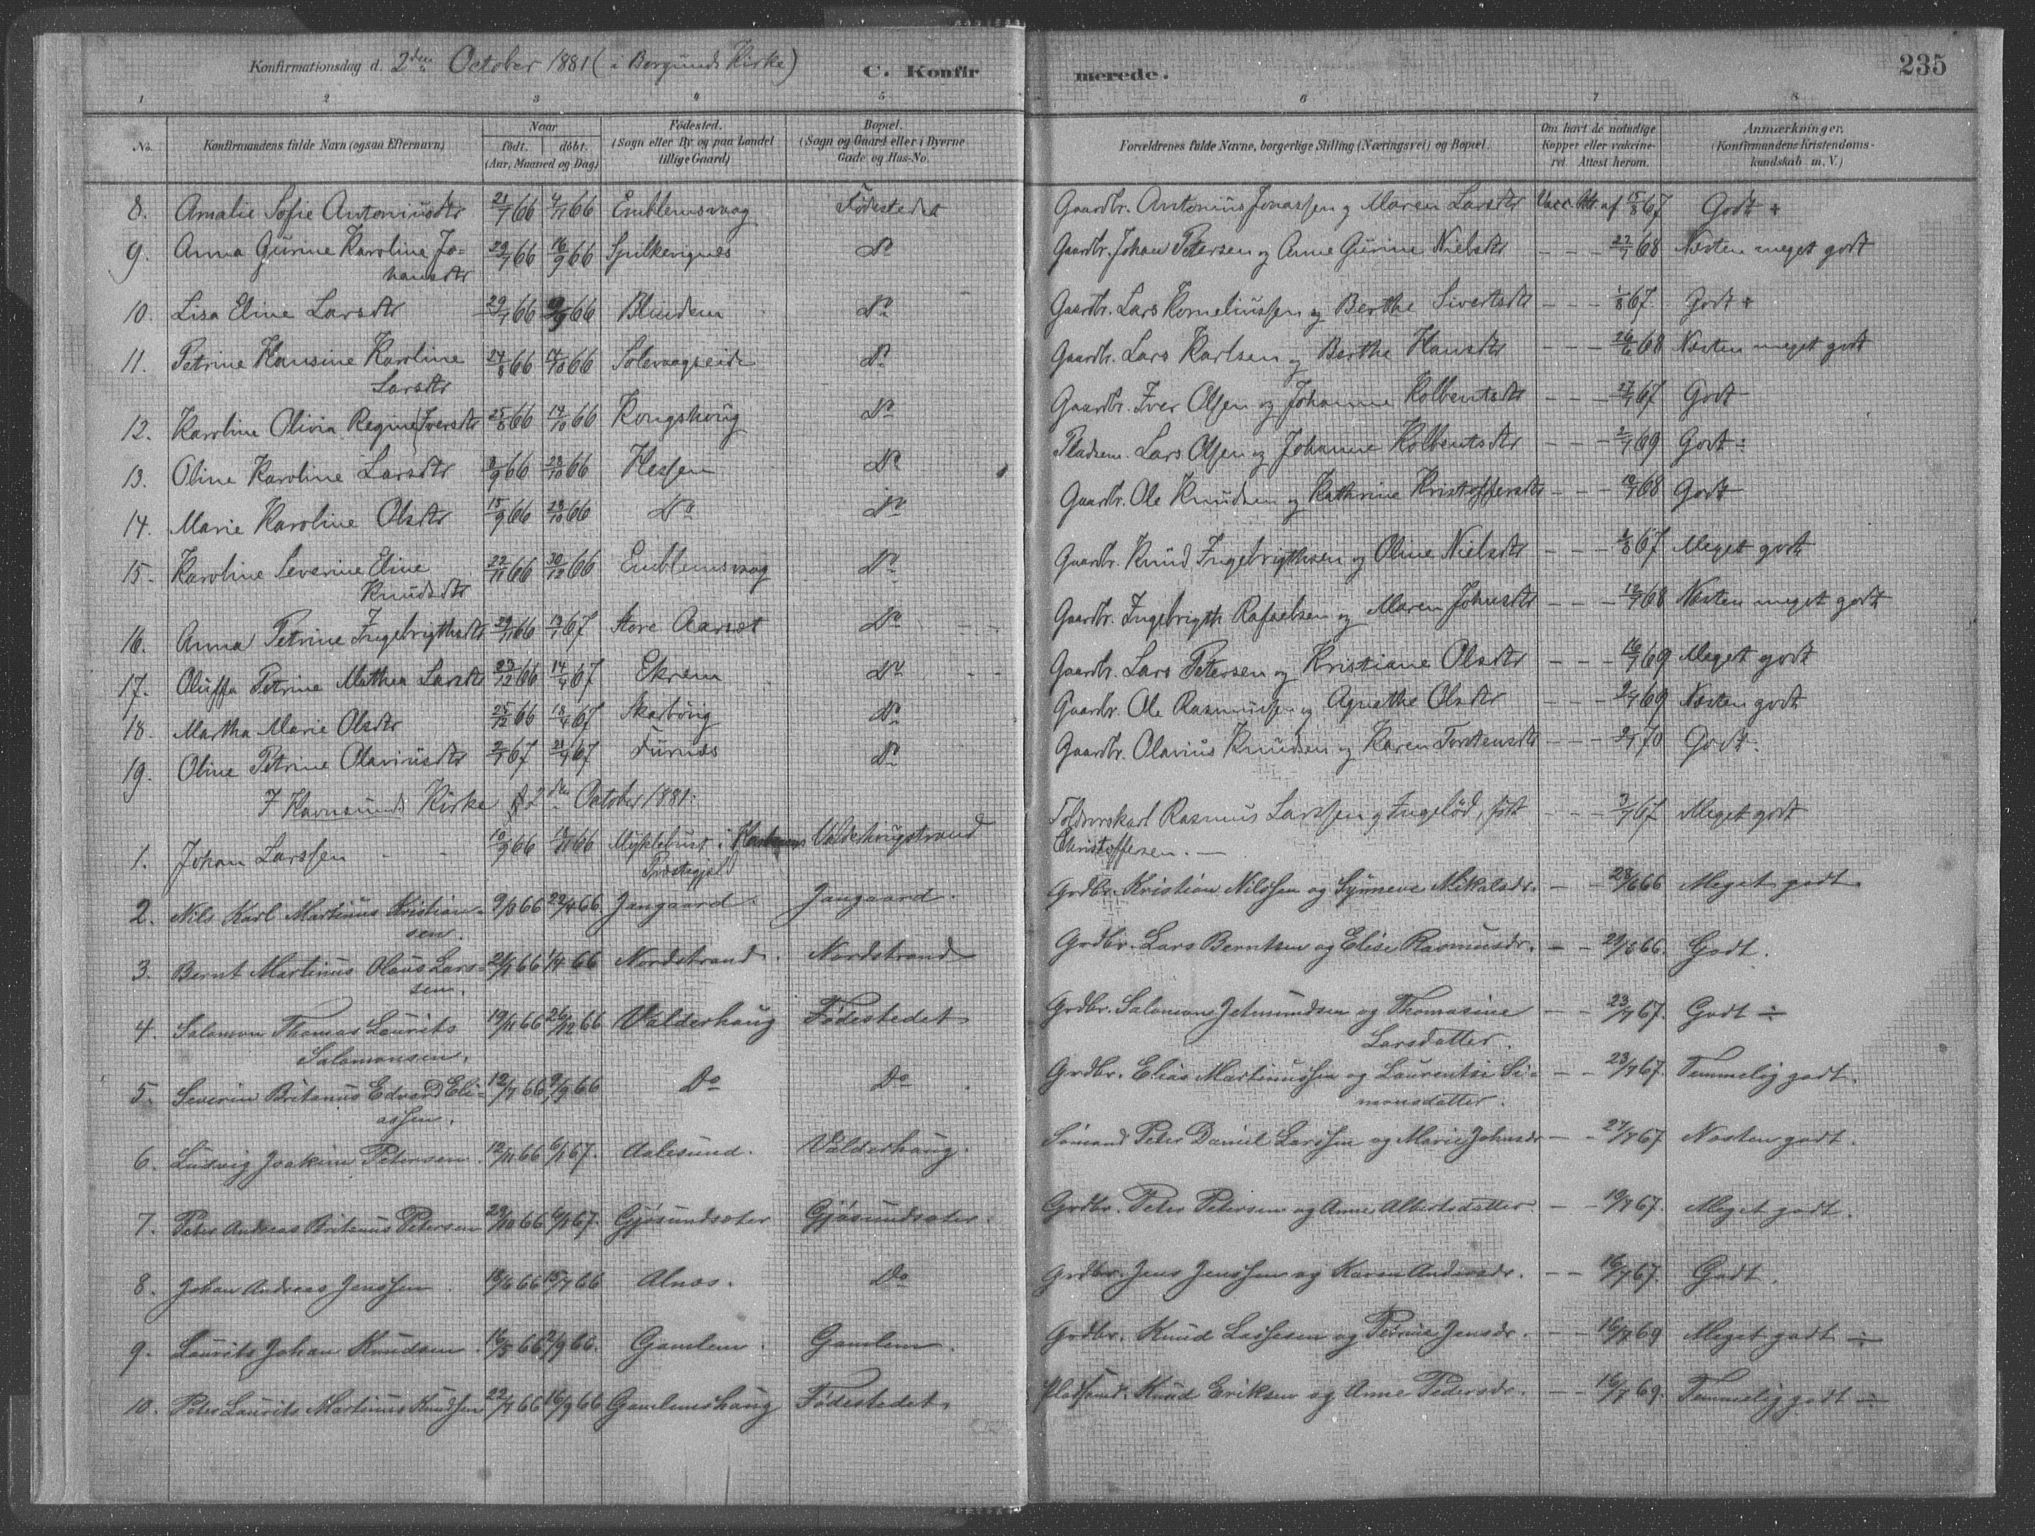 Konfirmationsdag d. 2den October 1881 (i Borgunds Kirke) C. Konfirmerede. 235
1 2 3 4 5 6 7 8
No. Konfirmandens fulde Navn (ogsaa Efternavn) Naar født. døbt. (Aar, Maaned og Dag) Fødested. (Sogn eller By og paa Landet tillige Gaard) Bopæl. (Sogn og Gaard eller i Byerne Gade og Hus-No. Forældrenes fulde Navne, borgerlige Stilling (Næringsvei) og Bopæl. Om havt de naturlige Kopper eller vaccineret. Attest herom. Anmærkninger. (Konfirmandens Kristendomskundskab m. V.)
8. Amalie Sofie Antoniusdtr 21/7 66 4/11 66 Emblemsvaag Fødestedet Gaardbr. Antonius Jonassen og Maren Larsdtr Vacc. Att. af 15/8 67 Godt +
9. Anna Gurine Karoline Johansdtr 29/7 66 16/9 66 Spilkevignes Do Gaardbr. Johan Petersen og Anne Gurine Nielsdtr - - - 27/7 68 Næsten meget godt
10. Lisa Eline Larsdtr 29/7 66 9/9 66 Blindem Do Gaardbr. Lars Korneliussen og Berthe Sivertsdtr - - - 1/8 67. Godt +
11. Petrine Hansine Karoline Larsdtr 24/8 66 14/10 66 Solevaagseide Do Gaardbr. Lars Karlsen og Berthe Hansdtr - - - 26/6 68 Næsten meget godt
12. Karoline Olivia Regine Iversdtr 25/8 66 14/10 66 Kongshoug Do Gaardbr. Iver Olsen og Johanne Kolbentsdtr - - - 27/7 67 Godt
13. Oline Karoline Larsdtr 8/9 66 28/10 66 Hessen Do Pladsem. Lars Olsen og Johanne Kolbentsdtr - - - 2/7 69 Godt÷
14. Marie Karoline Olsdtr 15/9 66 28/10 66 Do Do Gaardbr. Ole Knudsen og Kathrine Kristoffersdtr - - - 18/7 68 Godt
15. Karoline Severine Eline Knudsdtr 22/11 66 30/12 66 Emblemsvaag Do Gaardbr. Knud Ingebrigthsen og Oline Nielsdtr - - - 2/8 67 Meget godt
16. Anna Petrine Ingebrigthsdtr 29/11 66 13/1 67 Store Aarsæt Do Gaardbr. Ingebrigth Rafaelsen og Maren Johnsdtr - - - 18/7 68 Næsten meget godt
17. Oluffa Petrine Mathea Larsdtr 23/12 66 14/4 67 Ekrem Do Gaardbr. Lars Petersen og Kristiane Olsdtr - - - 16/7 69 Meget godt
18. Martha Marie Olsdtr 25/12 66 18/4 67 Skarbövig Do Gaardbr. Ole Rasmussen og Agnethe Olsdtr - - - 2/7 69 Næsten godt
19. Oline Petrine Olaviusdtr 2/1 67 21/4 67 Furnæs Do Gaardbr. Olavius Knudsen og Karen Torstensdtr - - - 2/7 70 Godt.
I Havnsunds Kirke d 2den October 1881:
1. Johan Larssen - - 10/9 66 18/11 66 Myklebust i Præstegjeld Valderhougstrand Toldoverskarl Rasmus Larssen og Ingeböd, født Christoffersen. - - - 3/7 67 Meget godt
2. Nils Karl Martinus Kristiansen. 9/3 66 22/4 66. Jangaard. Jangaard. Grdbr. Kristian Nilssen og Synneve Mikalsdr. - - 28/6 66 Meget godt.
3. Bernt Martinus Olaus Larssen. 21/1 66 1/4 66 Nordstrand. Nordstrand Grdbr. Lars Berntsen og Elise Rasmusdr. - - 29/6 66. Godt.
4. Salamon Thomas Laurits Salamonsen. 19/11 66 26/12 66 Valderhaug Fødestedet Grdbr. Salamon Jetmundsen og Thomasine Larsdatter. - - 23/7 67. Godt ÷
5. Severin Britanus Edvard Eliassen. 12/7 66 9/9 66 Do Do Grdbr. Elias Martinussen og Laurentse Simonsdatter. - - 23/7 67. Temmelig godt.
6. Ludvig Joakim Petersen. 12/11 66 6/1 67. Aalesund. Valderhaug. Sömand Peter Daniel Larssen og Marie Johnsdr - - 27/7 67. Næsten godt.
7. Peter Andreas Britanus Petersen 29/10 66 6/1 67. Gjösundsæter Gjösundsæter. Grdbr. Peter Petersen og Anne Albertsdatter. - - 19/7 67. Meget godt.
8. Johan Andreas Jenssen. 18/6 66 15/7 66 Alnæs. Do Grdbr. Jens Jenssen og Karen Andersdr. - - 16/7 67. Godt.
9. Laurits Johan Knudsen. 16/8 66 2/9 66. Gamlem. Gamlem. Grdbr. Knud Lassesen og Petrine Jensdr. - - 16/7 69 Meget godt ÷
10. Peter Laurits Martinus Knudsen 22/7 66 16/9 66 Gamlemshaug Fødestedet. Pladsmd. Knud Eriksen og Anne Pedersdr. - - 16/7 69. Temmelig godt ÷